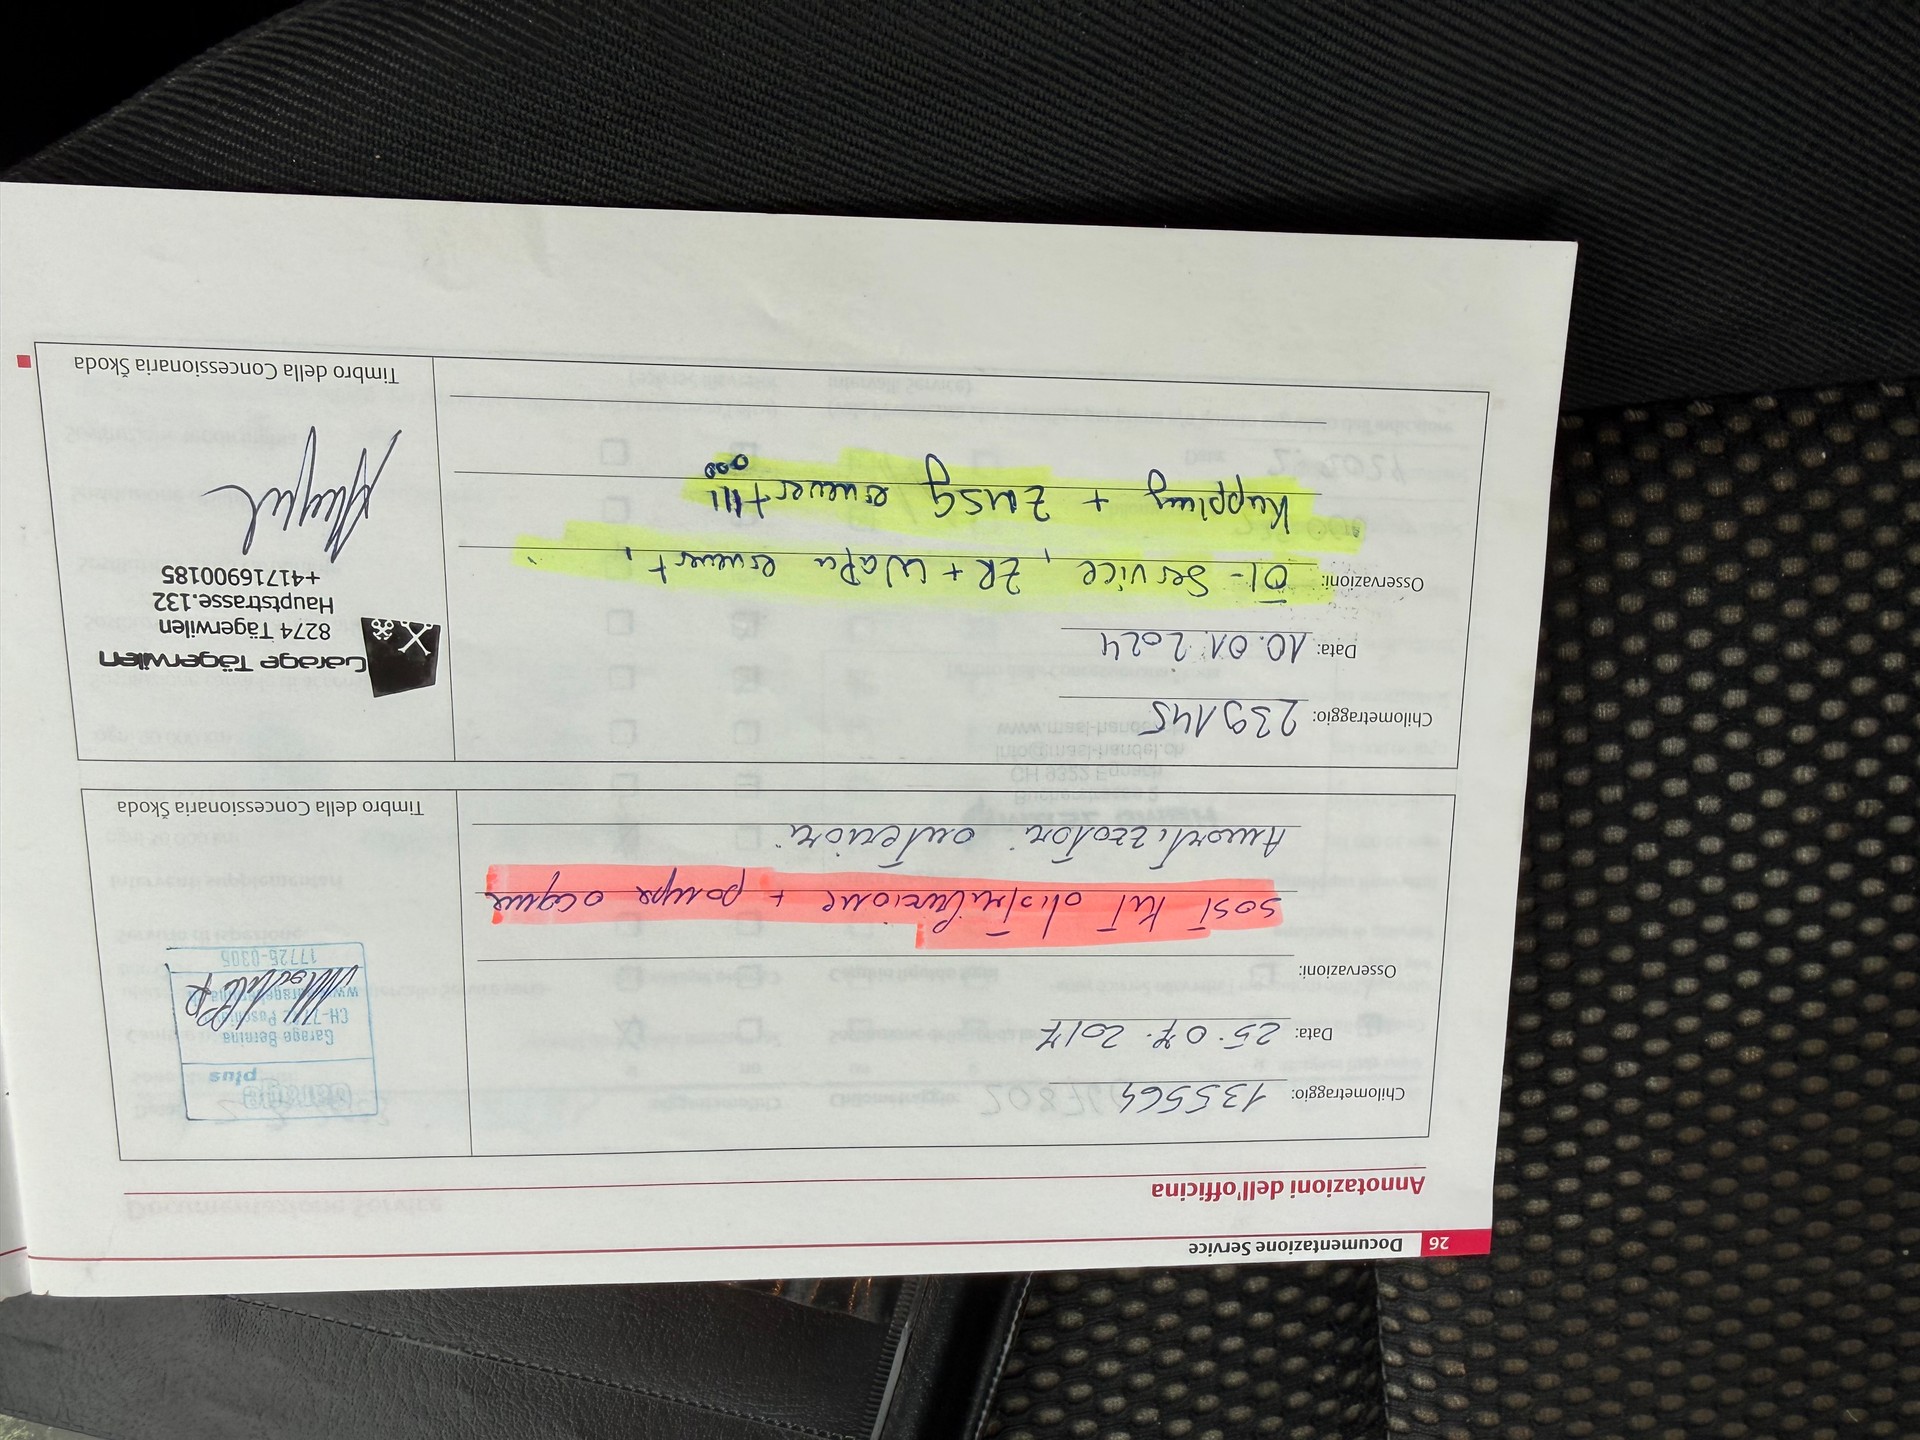 26 Documentazione Service
Annotazioni dell'officina
Chilometraggio: 135564
Data: 25.07.2017
Osservazioni:
Sost kit distribuzione + pompa acqua
Amortizzatori anteriori
plus
Garage Bernina
17725-0305
Timbro della Concessionaria Škoda
Chilometraggio: 239145
Data: 10.01.2024
Osservazioni: Öl-Service, ZR + WaPu erneuert,
Kupplung + ZMSG erneuert !!!
Garage Tägerwilen
8274 Tägerwilen
Hauptstrasse.132
+41716900185
Timbro della Concessionaria Škoda